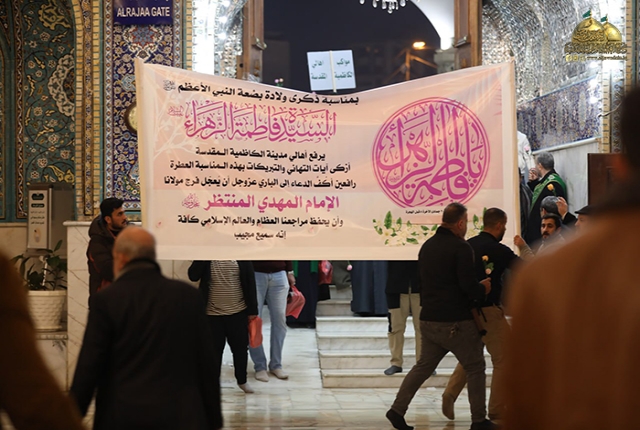 ALRAJAA GATE
مواكب اهالي
الكاظمية المقدسة
بمناسبة ذكرى ولادة بضعة النبي الأعظم
السيدة فاطمة الزهراء
يرفع أهالي مدينة الكاظمية المقدسة
أزكى آيات التهاني والتبريكات بهذه المناسبة العطرة
رافعين أكف الدعاء الى الباري عزوجل أن يعجل فرج مولانا
الإمام المهدي المنتظر
وأن يحفظ مراجعنا العظام والعالم الإسلامي كافة
إنه سميع مجيب
يا فاطمة الزهراء